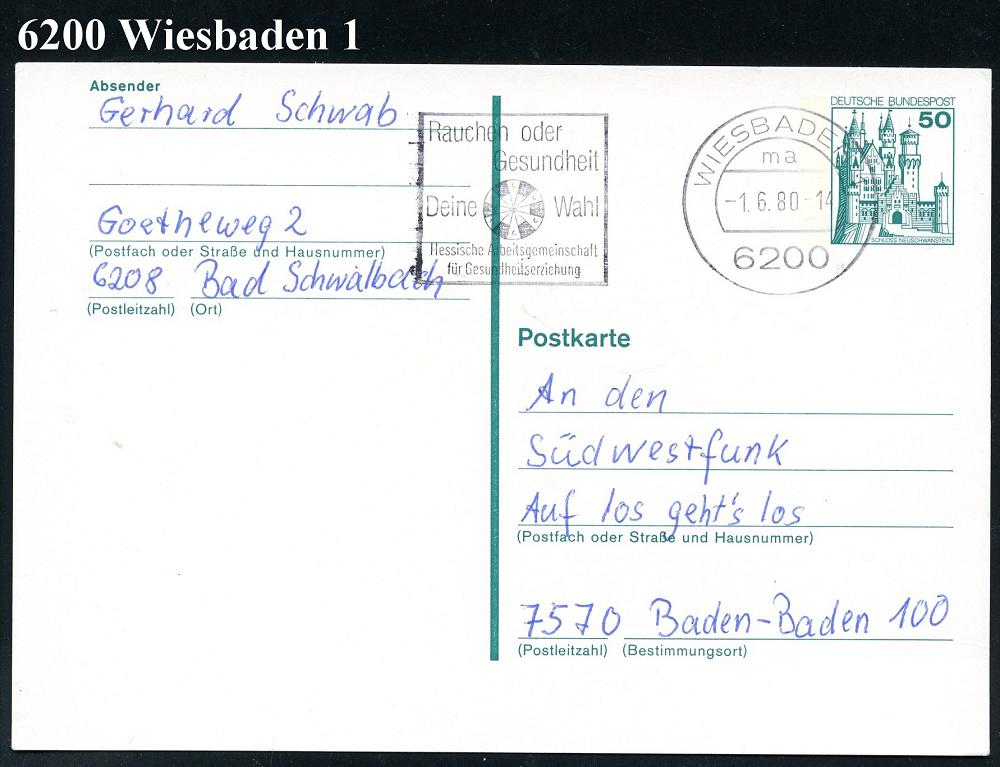 6200 Wiesbaden 1
Absender
Gerhard Schwab
Goetheweg 2
(Postfach oder Straße und Hausnummer)
6208 Bad Schwalbach
(Postleitzahl) (Ort)
Rauchen oder
Gesundheit
Deine Wahl
Hessische Arbeitsgemeinschaft
für Gesundheitserziehung
WIESBADEN
ma
-1.6.80-14
6200
DEUTSCHE BUNDESPOST
50
SCHLOSS NEUSCHWANSTEIN
Postkarte
An den
Südwestfunk
Auf los geht's los
(Postfach oder Straße und Hausnummer)
7570 Baden-Baden 100
(Postleitzahl) (Bestimmungsort)